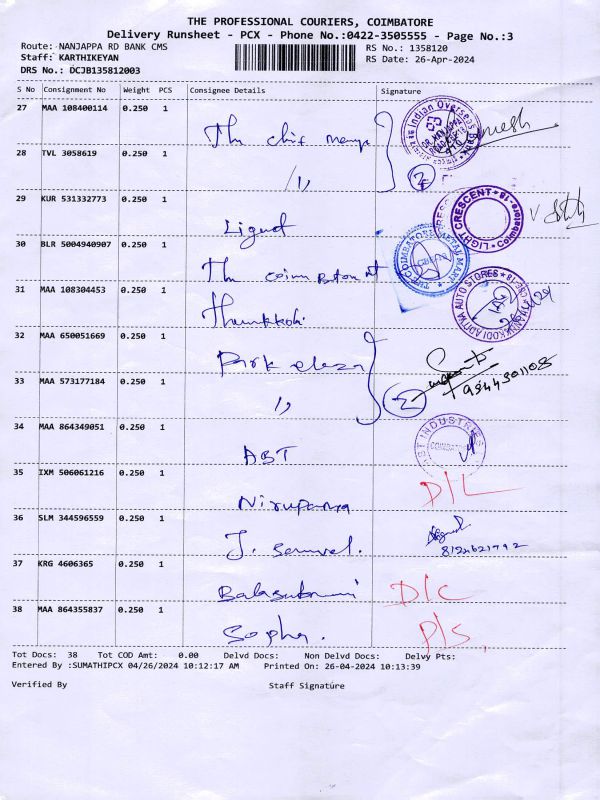 THE PROFESSIONAL COURIERS, COIMBATORE
Delivery Runsheet - PCX - Phone No.:0422-3505555 - Page No.:3
Route: NANJAPPA RD BANK CMS RS No.: 1358120
Staff: KARTHIKEYAN RS Date: 26-Apr-2024
DRS No.: DCJB135812003
S No Consignment No Weight PCS Consignee Details Signature
27 MAA 108400114 0.250 1 The chif
28 TVL 3058619 0.250 1 2
Indian Overseas Bank
29 KUR 531332773 0.250 1
LIGHT CRESCENT Coimbatore-18
30 BLR 5004940907 0.250 1 The
31 MAA 108304453 0.250 1
ADITYA AUTO STORES
32 MAA 650051669 0.250 1 Park
33 MAA 573177184 0.250 1 2
9944301108
34 MAA 864349051 0.250 1 ABT
INDUSTRIES
35 IXM 506061216 0.250 1 Nirupama D/L
36 SLM 344596559 0.250 1 J. Samuel.
8124621792
37 KRG 4606365 0.250 1 D/C
38 MAA 864355837 0.250 1 Sopha. P/S
Tot Docs: 38 Tot COD Amt: 0.00 Delvd Docs: Non Delvd Docs: Delvy Pts:
Entered By :SUMATHIPCX 04/26/2024 10:12:17 AM Printed On: 26-04-2024 10:13:39
Verified By Staff Signature